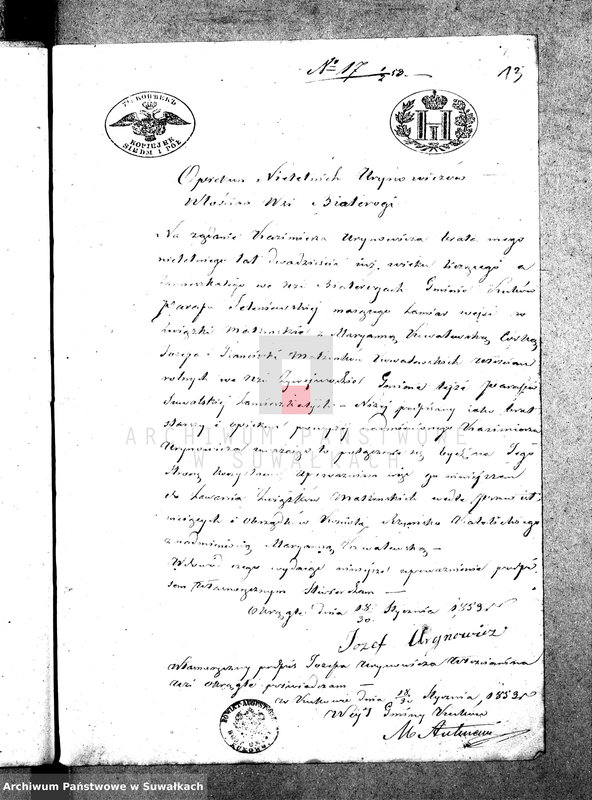 No 17 1/2 53.
13
75 КОПѢЕКЪ
KOPIEJEK
SIEDM I PÓŁ
Opiekun Nieletnich Urynowiczów
Włościan Wsi Białerogi
Na żądanie Kazimierza Urynowicza brata mego
nieletniego lat dwadzieścia wieku liczącego a
zamieszkałego we wsi Białorogach Gminie Kuków
Parafii Jeleniewskiej mającego zamiar wejść w
związki małżeńskie z Maryanną Kowalewską Córką
Józefa i Franciszki Małżonków Kowalewskich Włościan
rolnych we wsi Gminie tejże parafii
Suwalskiej zamieszkałych – Niżej podpisany jako brat
starszy i opiekun powyżej nadmienionego Kazimierza
Urynowicza uważając to połączenie się będzie dla Jego
korzystne. Upoważnia więc go niniejszem
do zawarcia Związków Małżeńskich wedle praw ist-
niejących i obrządków Kościoła Rzymsko Katolickiego
z nadmienioną Maryanną Kowalewską –
W dowód czego wydaje niniejsze upoważnienie podpi-
sem własnoręcznym stwierdzam –
Okrągłe dnia 18/30 Stycznia 1853 r.
Jozef Urynowicz
Własnoręczny podpis Józefa Urynowicza Włościanina
wsi Okrągłe poświadczam –
w Kukowie dnia 18/30 Stycznia 1853 r.
Wójt Gminy Kuków
M
ARCHIWUM PAŃSTWOWE
W SUWAŁKACH
Archiwum Państwowe w Suwałkach